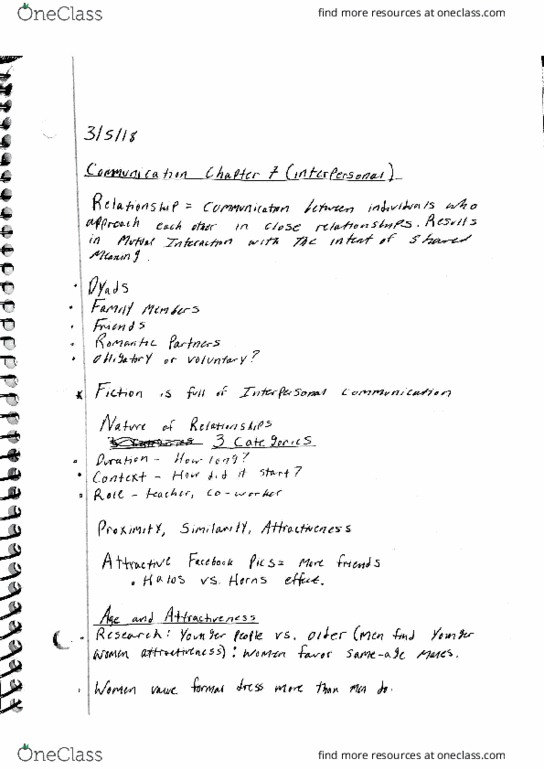 OneClass
find more resources at oneclass.com
3/5/18
Communication Chapter 7 (interpersonal)
Relationship = communication between individuals who
approach each other in close relationships. Results
in Mutual Interaction with the intent of shared
meaning.
• Dyads
• Family Members
• Friends
• Romantic Partners
• obligatory or voluntary?
* Fiction is full of Interpersonal communication
Nature of Relationships
3 Categories
• Duration - How long?
• Context - How did it start?
• Role - teacher, co-worker
Proximity, Similarity, Attractiveness
Attractive Facebook Pics = more friends
• Halos vs. Horns effect.
Age and Attractiveness
• Research: Younger People vs. older (men find younger
women attractiveness): women favor same-age males.
• Women value formal dress more than men do.
OneClass
find more resources at oneclass.com